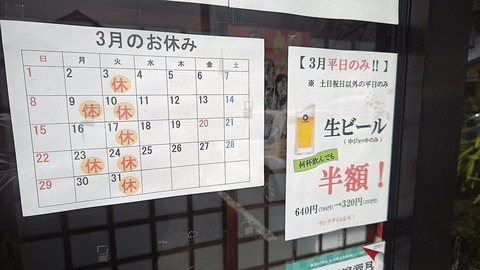 3月のお休み
日 月 火 水 木 金 土
1 2 3 4 5 6 7
休
8 9 10 11 12 13 14
休 休
15 16 17 18 19 20 21
休
22 23 24 25 26 27 28
休 休
29 30 31
休
【 3月平日のみ!! 】
※ 土日祝日以外の平日のみ
生ビール
(中ジョッキのみ)
何杯飲んでも
半額!
640円(704円)→320円(352円)
ランチタイムも可!